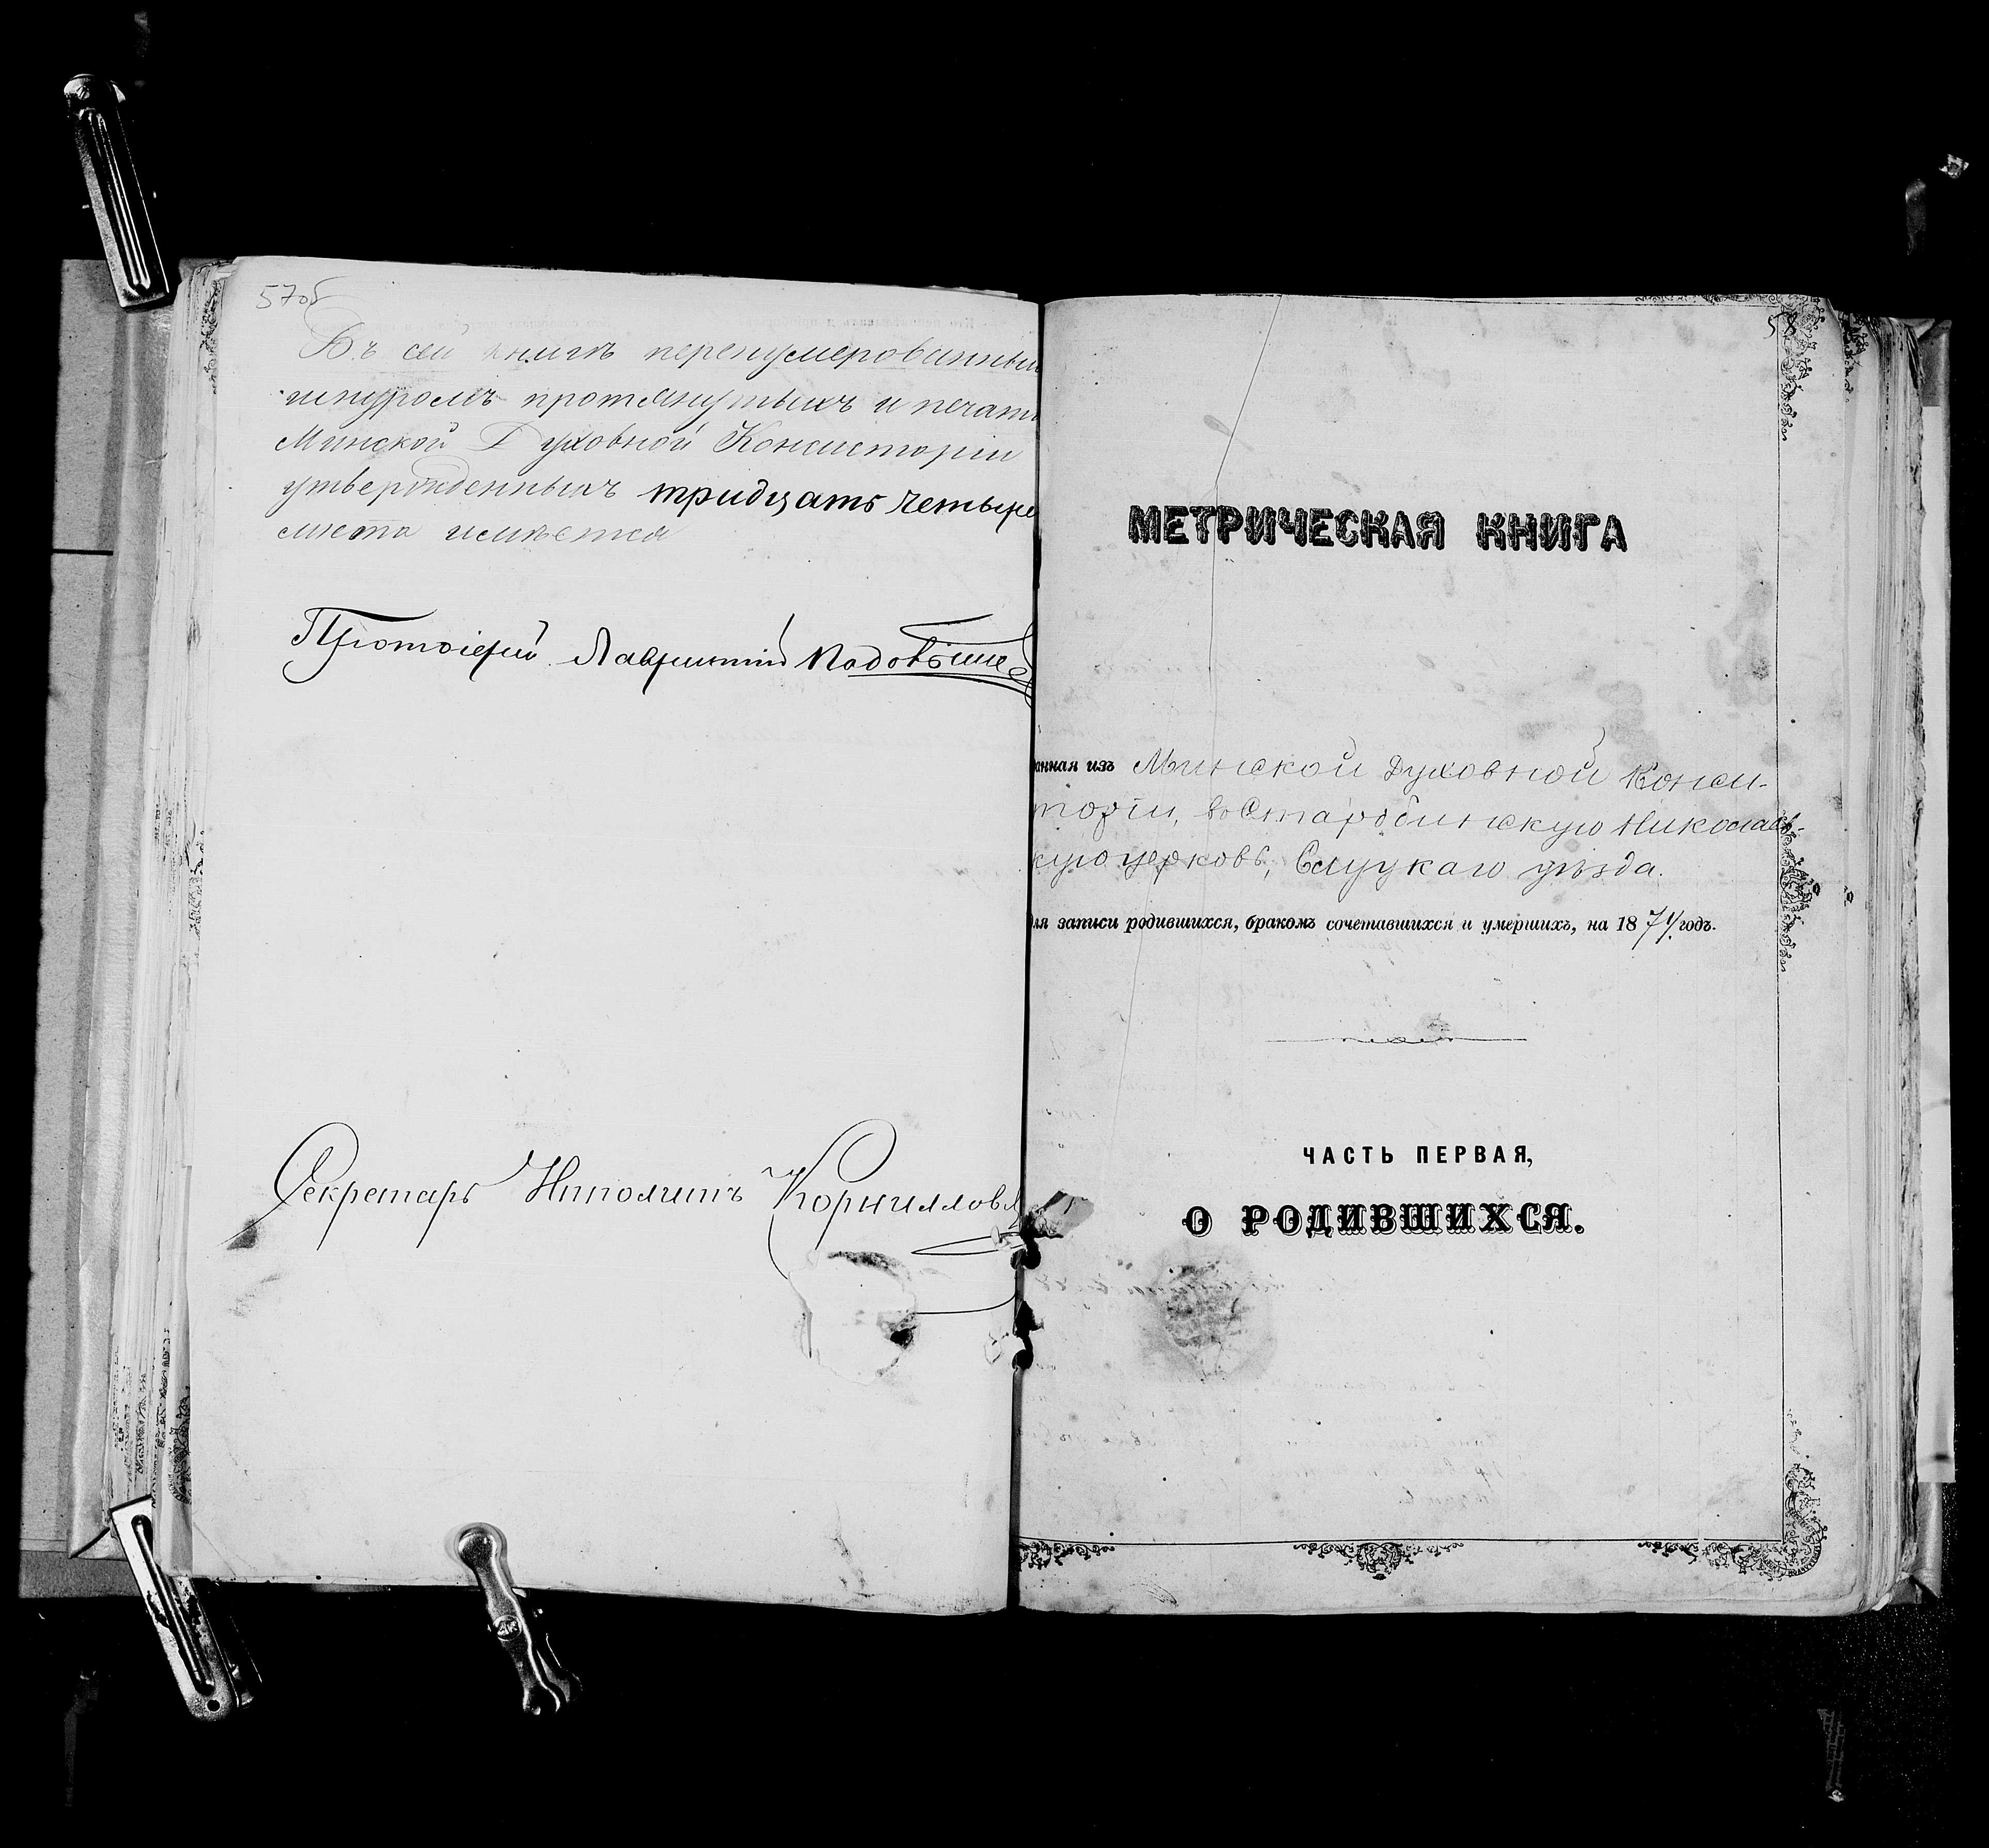 57об
Въ сей книгѣ перенумерованны
шнуромъ протянутыхъ и печат
Минской Духовной Консисторіи
утвержденныхъ тридцать четыре
листа имѣется
Протоіерей Лаврентій
Секретарь Ипполитъ Корниллов
58
МЕТРИЧЕСКАЯ КНИГА
анная изъ Минской Духовной Конси-
торіи, въ Старобинскую Николаев-
кую церковь, Слуцкаго уѣзда.
ля записи родившихся, бракомъ сочетавшихся и умершихъ, на 1871/годъ.
ЧАСТЬ ПЕРВАЯ,
О РОДИВШИХСЯ.